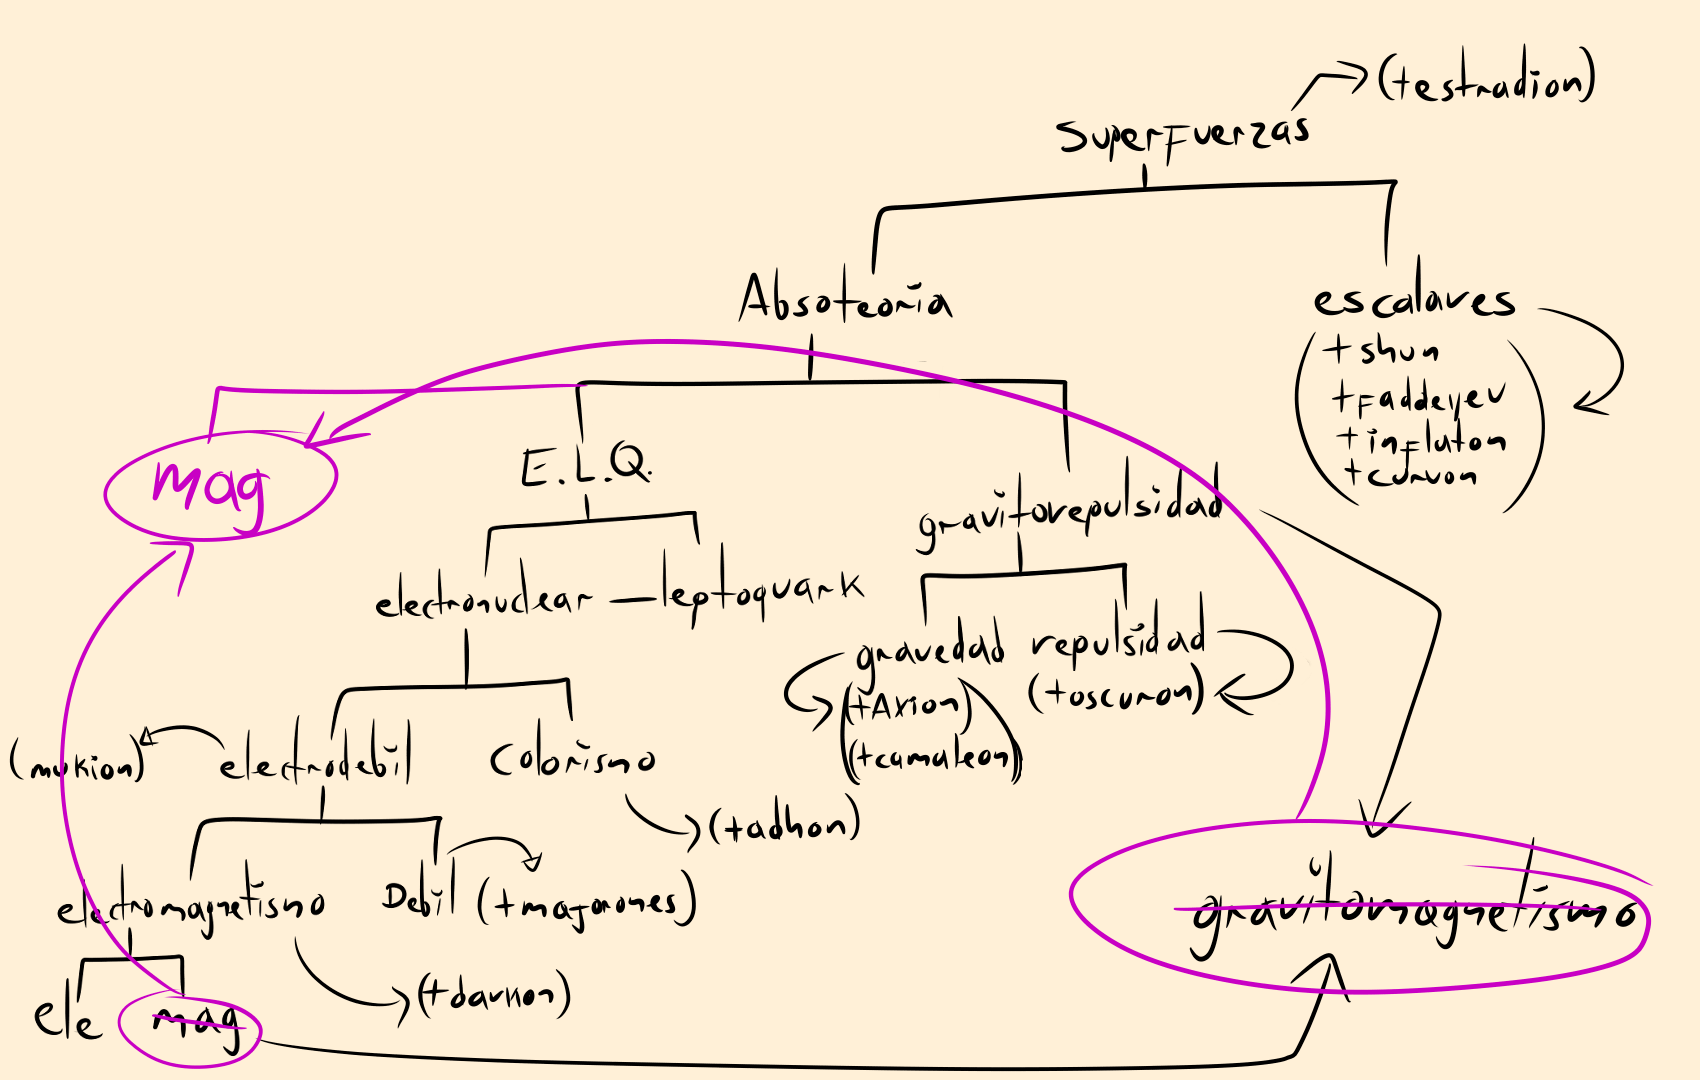 (+estradion)
SuperFuerzas
Absoteoria
escalares
+ shun
+ Faddeyev
+ inFluton
+ curvon
mag
E.L.Q.
gravitorepulsidad
electronuclear — leptoquark
gravedad repulsidad
(+Axion) (+oscuron)
(+camaleon)
(mukion) electrodebil Colorismo
(+adhon)
electromagnetismo Debil (+majorones)
gravitomagnetismo
(+darkon)
ele mag